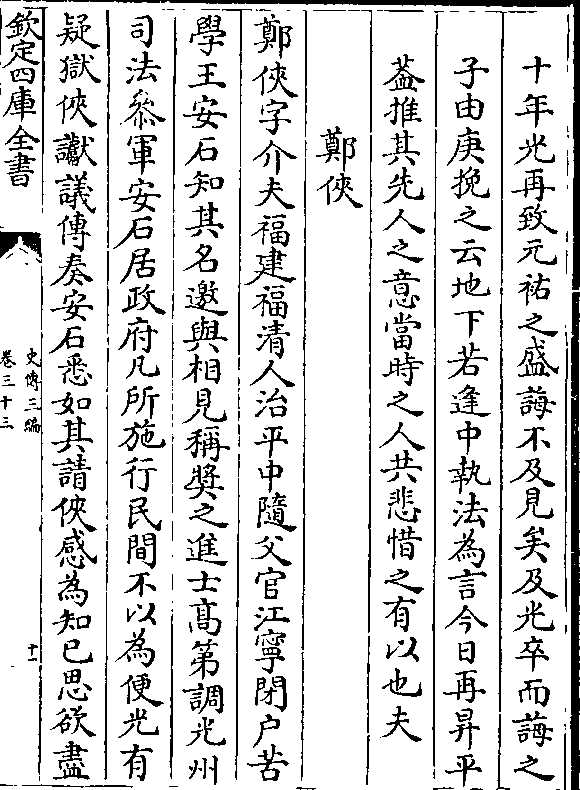 十年光再致元祐之盛誨不及見矣及光卒而誨之
子由庚挽之云地下若逢中執法為言今日再昇平
葢推其先人之意當時之人共悲惜之有以也夫
鄭俠
鄭俠字介夫福建福清人治平中隨父官江寧閉户苦
學王安石知其名邀與相見稱奬之進士髙第調光州
司法叅軍安石居政府凡所施行民間不以為便光有
疑獄俠讞議傳奏安石悉如其請俠感為知已思欲盡
欽定四庫全書
史傳三編
卷三十三
十一